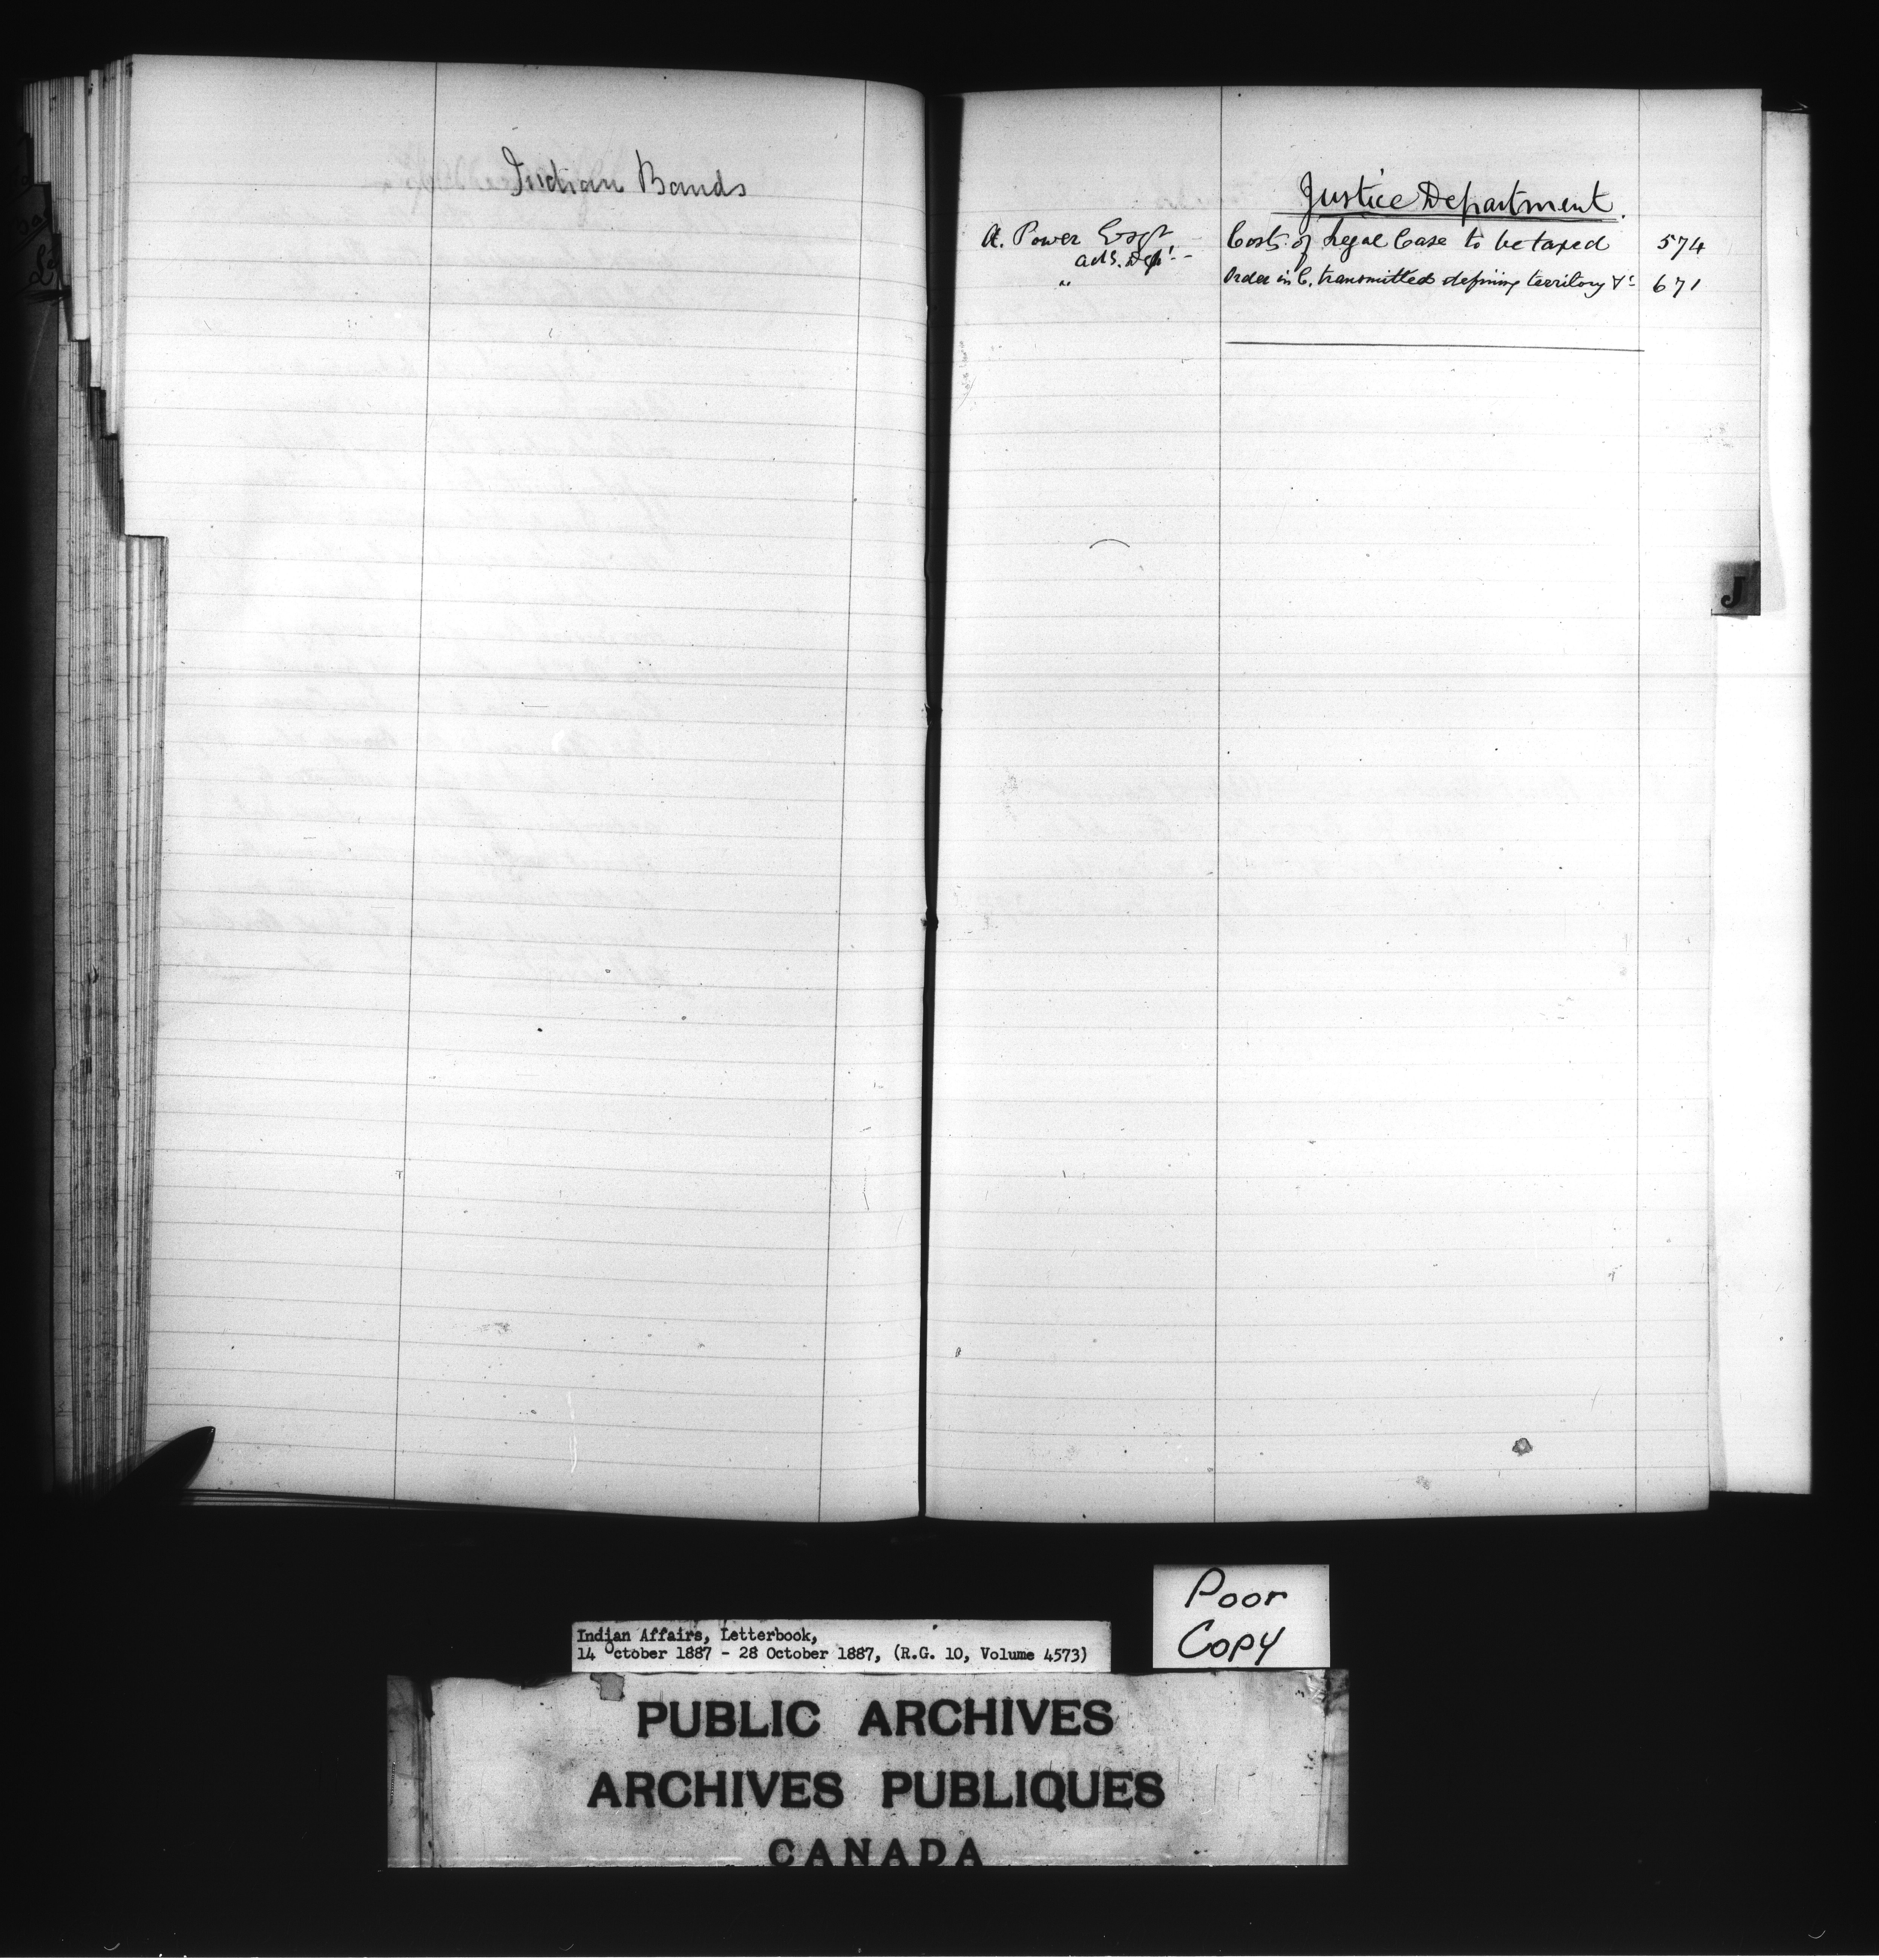 Indian Bands
Justice Department.
A. Power Esqr Costs of Legal Case to be taxed 574
actg. Dept.
" Order in C. transmitted defining territory &c 671
J
Poor
Copy
Indian Affairs, Letterbook,
14 October 1887 - 28 October 1887, (R.G. 10, Volume 4573)
PUBLIC ARCHIVES
ARCHIVES PUBLIQUES
CANADA